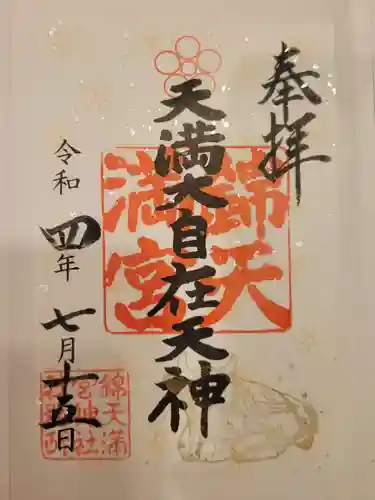 奉拝
天満大自在天神
錦天
満宮
令和四年七月十五日
錦天満
宮神社